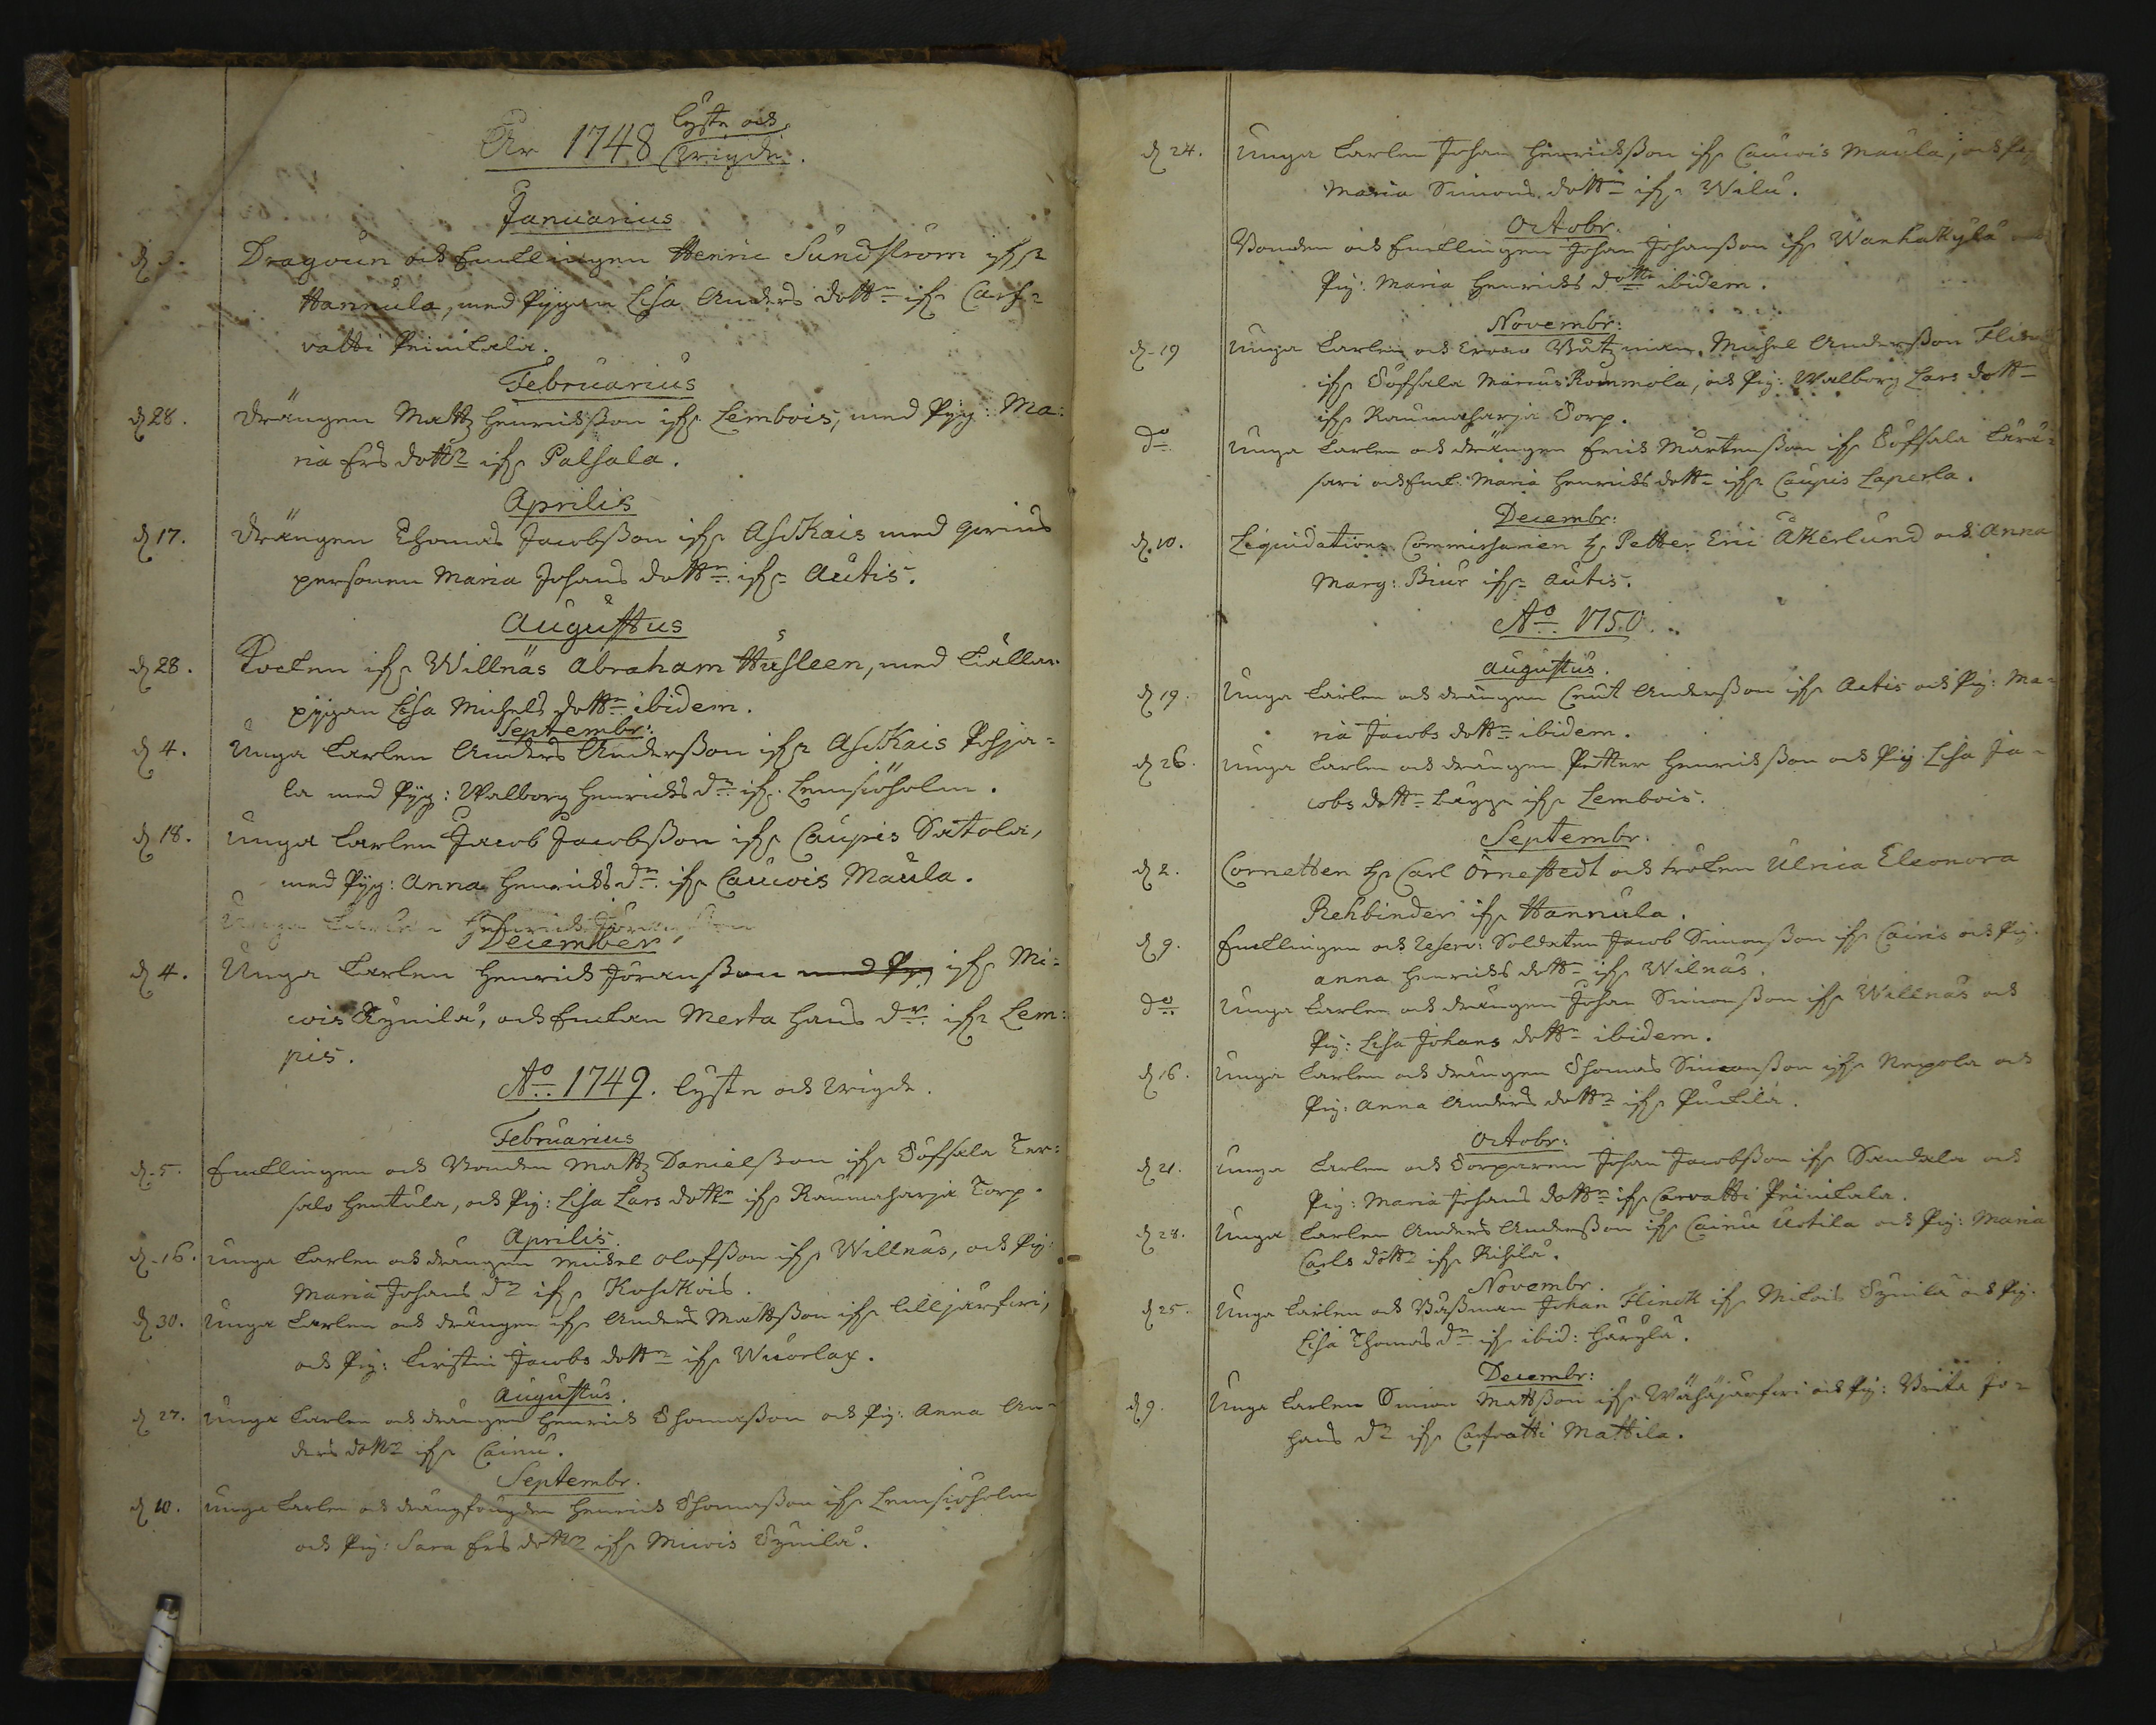 År 1748 Lyste och
wigde.
Januarius
Dragoun och Enklingen Henric Sundström ifr.
Hannula, med Pygan Lisa Anders dottr ifr. Carf-
vatti Prinikala.
Februarius
d 28. Drängen Mattz Henricksson ifr. Lembois, med Pyg: Ma:
ria Ers dottr ifr. Palsala.
Aprilis
d 17. Drängen Thomas Jacobsson ifr. Aschkais med qvins
personen Maria Johans dottr ifr. Autis.
Augustus
d 28. Kocken ifr. Willnäs Abraham Husleen, med Källar
pygan Lisa Michels dottr ibidem.
Septembr:
d 4. Unga Karlen Anders Andersson ifr. Aschkais Pohja-
la med Pyg: Walborg Henricks dr. ifr. Lemsiöholm.
d 18. Unga Karlen Jacob Jacobsson ifr. Caupis Satola,
med Pyg: Anna Henricks dr. ifr. Caucois Maula.
December
d 4. Unga Karlen Henrich Jöransson med Pyg ifr. Mi-
cois Kynilä, och Enkan Merta Hans dr. ifr. Lem:
pis.
Ao. 1749. Lyste och wigde.
Februarius
d. 5. Enklingen och Bonden Mattz Danielsson ifr. Tofsala Ter:
salo Hentula, och Pig: Lisa Lars dottr ifr. Raumaharja Torp.
Aprilis.
d. 16. Unga Karlen och drängen Mickel Olofsson ifr. Willnäs, och Pig:
Maria Johans dr ifr. Koschkois.
d 30. Unga Karlen och drängen ifr. Anders Mattsson ifr. Lilljärfwi,
och Pig: Kirstin Jacobs dottr ifr. Wuorlax.
Augustus.
d 27. Unga Karlen och drängen Henrich Thomasson och Pig: Anna An-
ders dottr ifr. Cainu.
Septembr.
d 10. Unga Karlen och drängfougden Henrich Thomasson ifr. Lemsiöholm
och Pig: Sara Ers dottr ifr. Micois Tynilä.
d 24. Unga Karlen Johan Henricksson ifr. Caucois Maula, och Pig
Maria Simons dottr ifr. Wilu.
Octobr.
Bonden och Enklingen Johan Johansson ifr. Wanhakylä
Pig: Maria Henricks dottr ibidem.
Novembr:
d. 19 Unga Karlen och Båtzman Michel Andersson
ifr. Tofsala Marcus Rommola, och Pig: Walborg Lars dottr
ifr. Raumaharja Torp.
do Unga Karlen och drängen Erich Mårtensson ifr. Tofsala
sari och Enk: Maria Henricks dottr ifr. Caupis Laperla.
Decembr:
d. 10. Liquidations Commissarien H. Petter Eric Åkerlund och Anna
Marg: Biur ifr. Autis.
Ao. 1750.
Augustus.
d 19. Unga Karlen och drängen Cnut Andersson ifr. Actis och Pig: Ma-
ria Jacobs dottr ibidem.
d 26. Unga Karlen och drängen Petter Henricksson och Pig. Lisa Ja-
cobs dottr bägge ifr. Lembois.
Septembr.
d 2. Cornetten H. Carl Örnestedt och fröken Ulrica Eleonora
Rehbinder ifr. Hannula.
d 9. Enklingen och reserv: Soldaten Jacob Simonsson ifr. Cairis och Pig.
Anna Henricks dottr ifr. Wilnäs.
do Unga Karlen och drängen Johan Simonsson ifr. Willnäs och
Pig: Lisa Johans dottr ibidem.
d 16. Unga Karlen och drängen Thomas Simonsson ifr. Nepola och
Pig: Anna Anders dottr ifr. Puckila.
Octobr:
d 21. Unga Karlen och Torparen Johan Jacobsson ifr. Sandala och
Pig: Maria Johans dottr ifr. Carvatti Prinikala.
d 28. Unga Karlen Anders Andersson ifr. Cainu Uotila och Pig: Maria
Carls dottr ifr. Rihilä.
Novembr.
d 25. Unga Karlen och Båssman Johan Flinck ifr. Mikois Tynilä och Pig.
Lisa Thomas dr ifr. ibid: Häryla.
Decembr:
d 9. Unga Karlen Simon Mattsson ifr. Wähäjärfwi och Pig: Brita Jo-
hans dr ifr. Carfvatti Mattila.